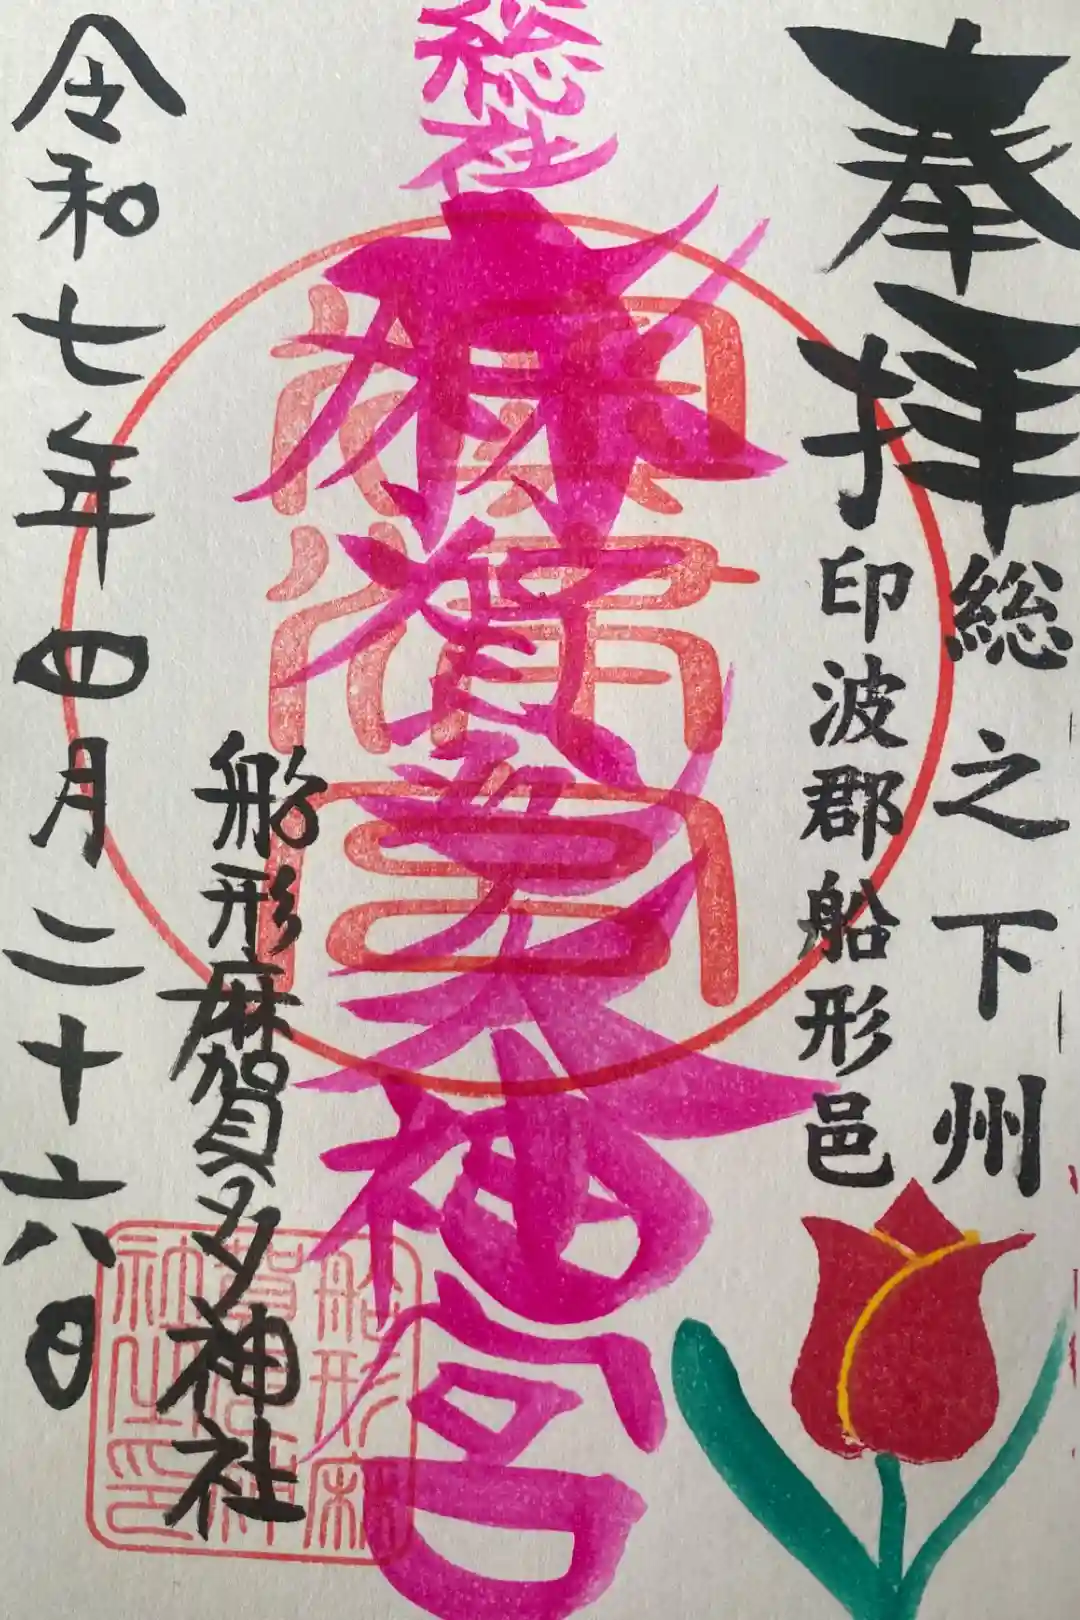 奉拝
総之下州
印波郡船形邑
総社
麻賀多大神宮
船形麻賀多神社
令和七年四月二十六日
船形麻賀多神社之印